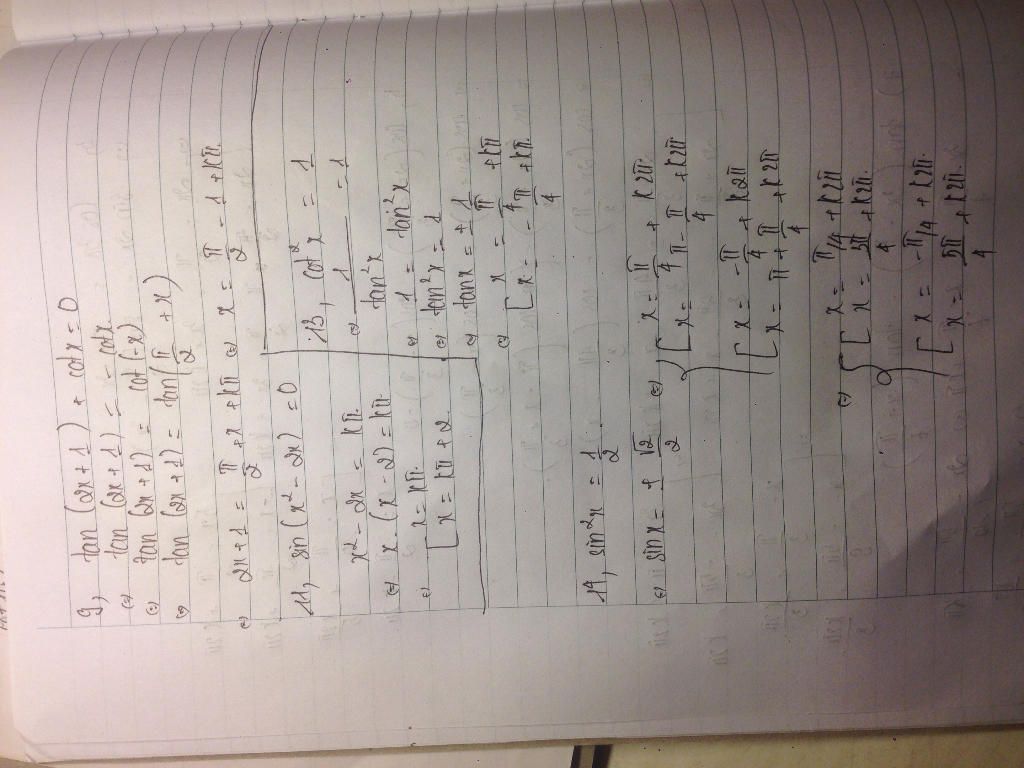 9, tan(2x+1) + cotx = 0
⇔ tan(2x+1) = -cotx
⇔ tan(2x+1) = cot(-x)
⇔ tan(2x+1) = tan(π/2 + x)
⇔ 2x+1 = π/2 + x + kπ ⇔ x = π/2 - 1 + kπ.
11, sin(x² - 2x) = 0
x² - 2x = kπ.
⇔ x.(x - 2) = kπ
⇔ [ x = kπ.
[ x = kπ + 2.
13, cot²x = 1
⇔ 1/tan²x = 1
⇔ 1 = tan²x
⇔ tan²x = 1
⇔ tanx = ±1
⇔ [ x = π/4 + kπ
[ x = -π/4 + kπ
14, sin²x = 1/2
⇔ sinx = ± √2/2 ⇔ { [ x = π/4 + k2π.
[ x = π - π/4 + k2π
[ x = -π/4 + k2π
[ x = π + π/4 + k2π
⇔ { [ x = π/4 + k2π.
[ x = 3π/4 + k2π.
[ x = -π/4 + k2π.
[ x = 5π/4 + k2π.